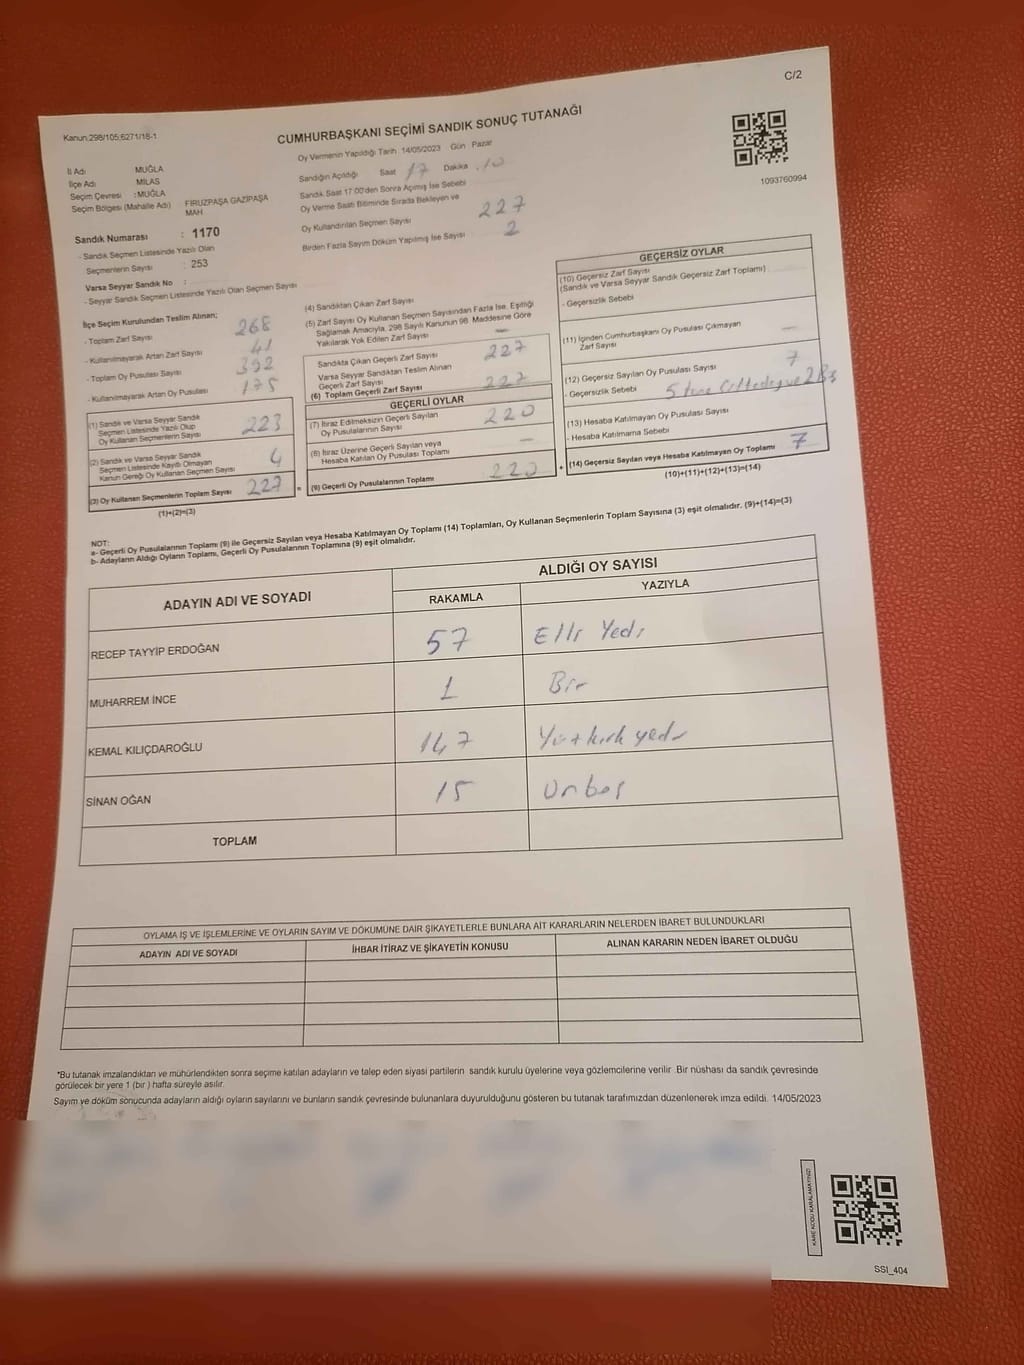 C/2
Kanun:298/105;6271/18-1
CUMHURBAŞKANI SEÇİMİ SANDIK SONUÇ TUTANAĞI
Oy Vermenin Yapıldığı Tarih :14/05/2023 Gün : Pazar
Sandığın Açıldığı Saat 17 Dakika .10
Sandık Saat 17:00'den Sonra Açılmış İse Sebebi
Oy Verme Saati Bitiminde Sırada Bekleyen ve
Oy Kullandırılan Seçmen Sayısı 227
Birden Fazla Sayım Döküm Yapılmış İse Sayısı 2
1093760994
İl Adı MUĞLA
İlçe Adı MİLAS
Seçim Çevresi : MUĞLA
Seçim Bölgesi (Mahalle Adı) FİRUZPAŞA GAZİPAŞA
MAH
Sandık Numarası : 1170
- Sandık Seçmen Listesinde Yazılı Olan
Seçmenlerin Sayısı : 253
Varsa Seyyar Sandık No :
- Seyyar Sandık Seçmen Listesinde Yazılı Olan Seçmen Sayısı
İlçe Seçim Kurulundan Teslim Alınan;
- Toplam Zarf Sayısı 268
- Kullanılmayarak Artan Zarf Sayısı 41
- Toplam Oy Pusulası Sayısı 392
- Kullanılmayarak Artan Oy Pusulası 175
(1) Sandık ve Varsa Seyyar Sandık
Seçmen Listesinde Yazılı Olup
Oy Kullanan Seçmenlerin Sayısı 223
(2) Sandık ve Varsa Seyyar Sandık
Seçmen Listesinde Kayıtlı Olmayan
Kanun Gereği Oy Kullanan Seçmen Sayısı 4
(3) Oy Kullanan Seçmenlerin Toplam Sayısı 227 =
(1)+(2)=(3)
(4) Sandıktan Çıkan Zarf Sayısı
(5) Zarf Sayısı Oy Kullanan Seçmen Sayısından Fazla İse, Eşitliği
Sağlamak Amacıyla, 298 Sayılı Kanunun 98. Maddesine Göre
Yakılarak Yok Edilen Zarf Sayısı —
Sandıkta Çıkan Geçerli Zarf Sayısı 227
Varsa Seyyar Sandıktan Teslim Alınan
Geçerli Zarf Sayısı
(6) Toplam Geçerli Zarf Sayısı 227
GEÇERLİ OYLAR
(7) İtiraz Edilmeksizin Geçerli Sayılan
Oy Pusulalarının Sayısı 220
(8) İtiraz Üzerine Geçerli Sayılan veya
Hesaba Katılan Oy Pusulası Toplamı —
(9) Geçerli Oy Pusulalarının Toplamı 220 +
GEÇERSİZ OYLAR
(10) Geçersiz Zarf Sayısı
(Sandık ve Varsa Seyyar Sandık Geçersiz Zarf Toplamı)
- Geçersizlik Sebebi
(11) İçinden Cumhurbaşkanı Oy Pusulası Çıkmayan
Zarf Sayısı —
(12) Geçersiz Sayılan Oy Pusulası Sayısı 7
- Geçersizlik Sebebi 5 tane
(13) Hesaba Katılmayan Oy Pusulası Sayısı
- Hesaba Katılmama Sebebi
(14) Geçersiz Sayılan veya Hesaba Katılmayan Oy Toplamı 7
(10)+(11)+(12)+(13)=(14)
NOT:
a- Geçerli Oy Pusulalarının Toplamı (9) ile Geçersiz Sayılan veya Hesaba Katılmayan Oy Toplamı (14) Toplamları, Oy Kullanan Seçmenlerin Toplam Sayısına (3) eşit olmalıdır. (9)+(14)=(3)
b- Adayların Aldığı Oyların Toplamı, Geçerli Oy Pusulalarının Toplamına (9) eşit olmalıdır.
ADAYIN ADI VE SOYADI ALDIĞI OY SAYISI
RAKAMLA YAZIYLA
RECEP TAYYİP ERDOĞAN 57 Elli Yedi
MUHARREM İNCE 1 Bir
KEMAL KILIÇDAROĞLU 147 Yüzkırk yedi
SİNAN OĞAN 15 Onbeş
TOPLAM
OYLAMA İŞ VE İŞLEMLERİNE VE OYLARIN SAYIM VE DÖKÜMÜNE DAİR ŞİKAYETLERLE BUNLARA AİT KARARLARIN NELERDEN İBARET BULUNDUKLARI
ADAYIN ADI VE SOYADI İHBAR İTİRAZ VE ŞİKAYETİN KONUSU ALINAN KARARIN NEDEN İBARET OLDUĞU
*Bu tutanak imzalandıktan ve mühürlendikten sonra seçime katılan adayların ve talep eden siyasi partilerin sandık kurulu üyelerine veya gözlemcilerine verilir .Bir nüshası da sandık çevresinde
görülecek bir yere 1 (bir ) hafta süreyle asılır.
Sayım ve döküm sonucunda adayların aldığı oyların sayılarını ve bunların sandık çevresinde bulunanlara duyurulduğunu gösteren bu tutanak tarafımızdan düzenlenerek imza edildi. 14/05/2023
KARE KODU KARALAMAYINIZ!
SSI_404